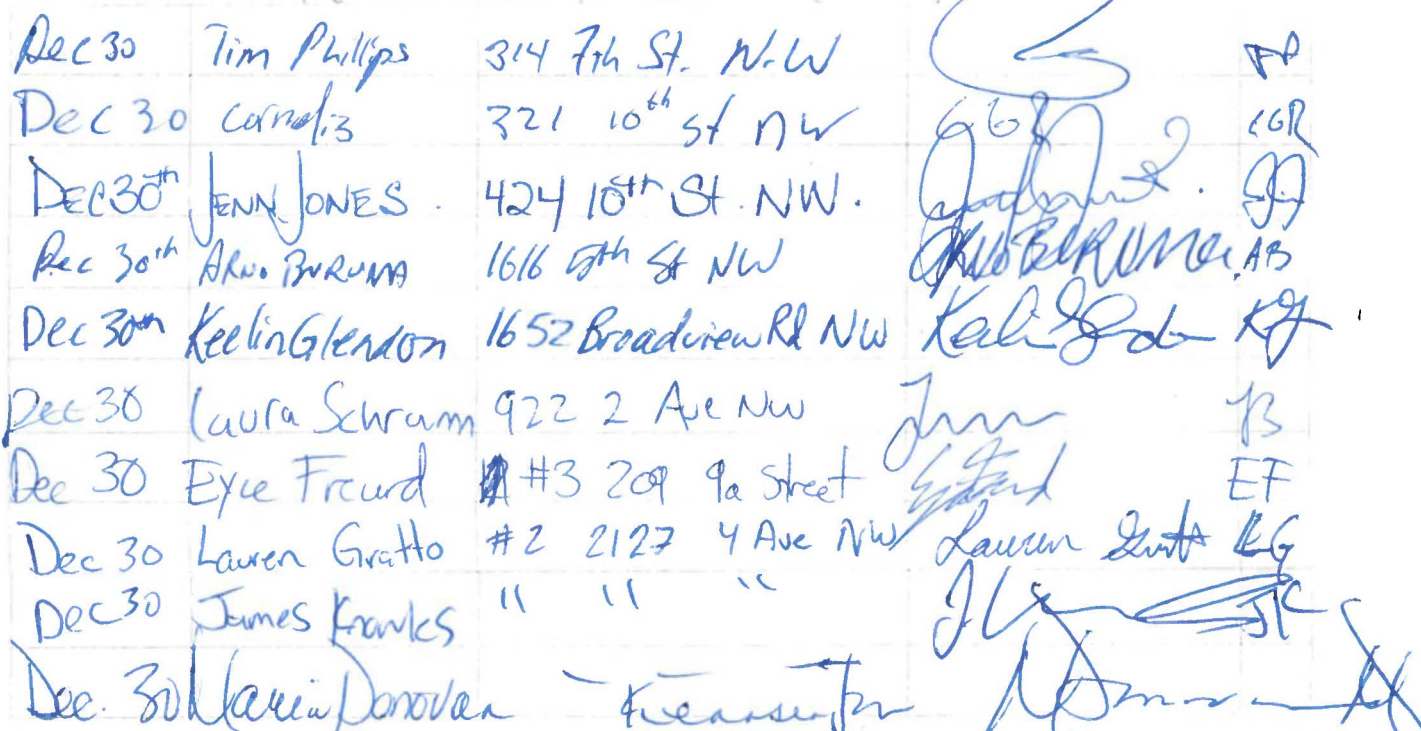 Dec 30 Tim Phillips 314 7th St. N.W TP
Dec 30 Cornelis 321 10th St NW CGR
DEC 30th JENN JONES. 424 10th St. NW. JJ
Dec 30th ARNO BURUMA 1616 5th St NW ARNO BURUMA AB
Dec 30th Keelin Glendon 1652 Broadview Rd NW Keelin Glendon KG
Dec 30 Laura Schramm 922 2 Ave NW
Dec 30 Eyce Freurd #3 209 9a Street EF
Dec 30 Lauren Gratto #2 2127 4 Ave NW Lauren Gratto LG
Dec 30 James " " " JK
Dec. 30 Maria Donovan Kensington